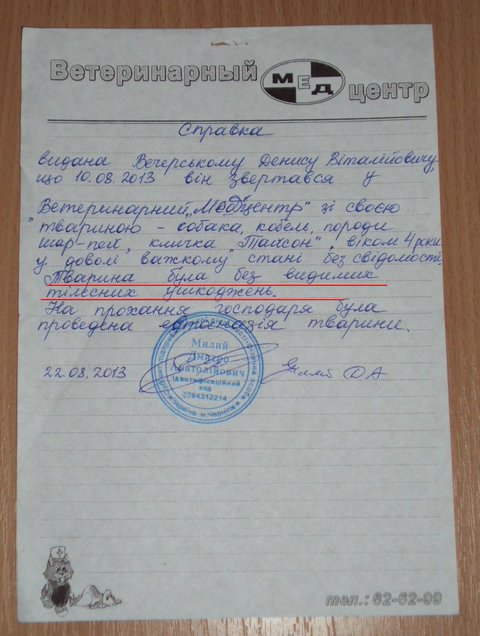 Ветеринарный МЕД центр
Справка
видана Вечерському Денису Віталійовичу,
що 10.08.2013 він звертався у
Ветеринарний „Медцентр" зі своєю
твариною - собака, кобель, породи
шар-пей, кличка „Тайсон", віком 4 роки
у доволі важкому стані без свідомості.
Тварина була без видимих
тілесних ушкоджень.
На прохання господаря була
проведена евтоназія тварини.
Милий
Дмитро
Анатолійович
ідентифікаційний
код
2784312214
Україна м. Чернігів
22.08.2013 Милий ДА
тел.: 62-62-99